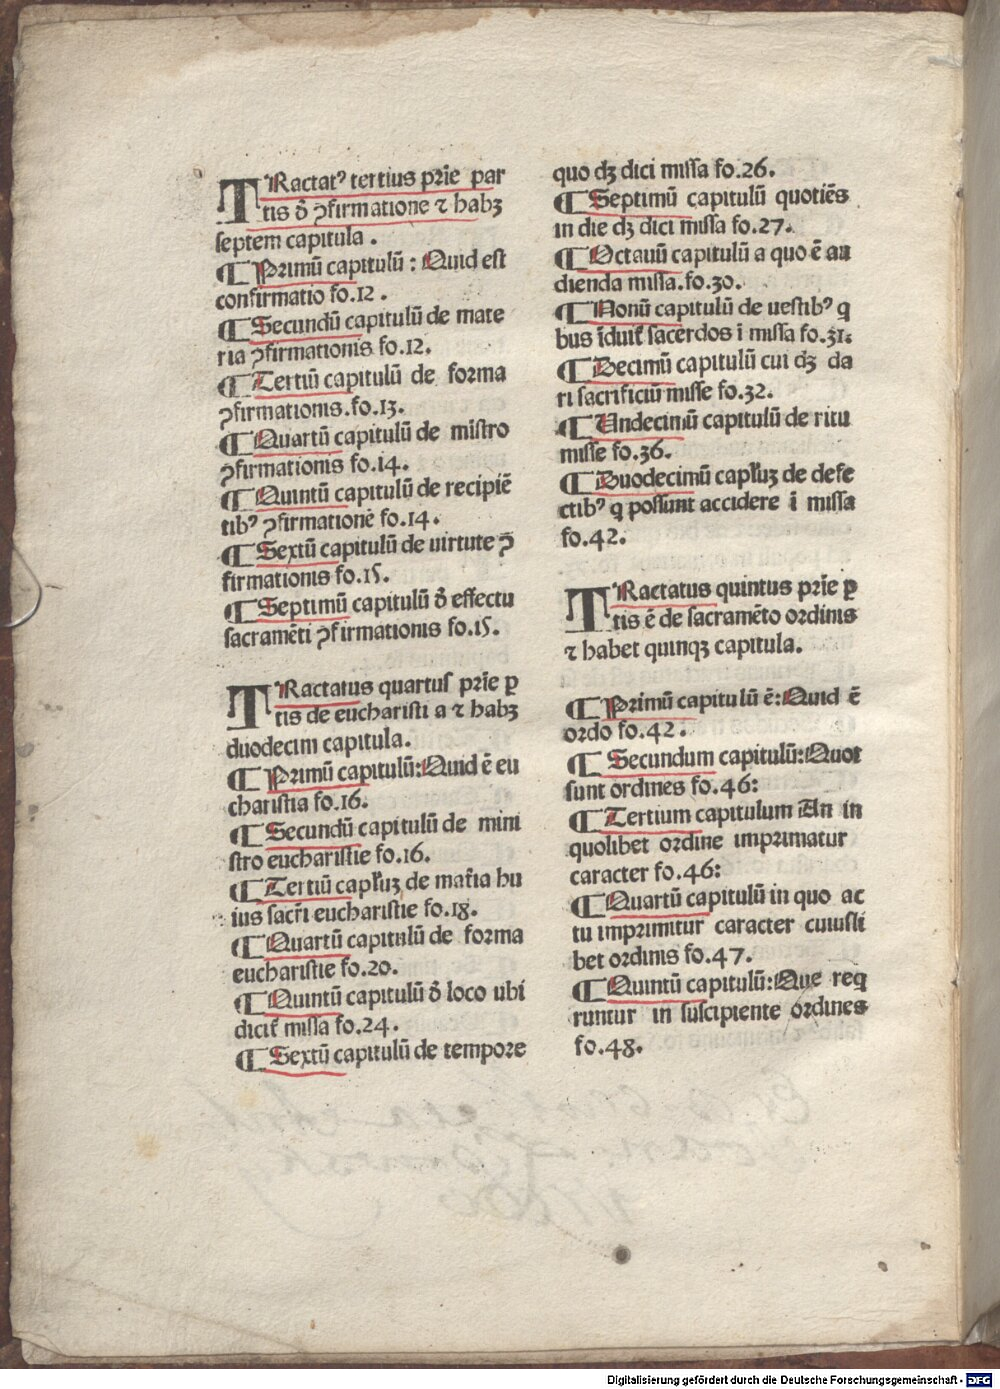 TRactatꝰ tertius prīe par
tis ð ꝯfirmatione ⁊ habꝫ
septem capitula .
¶ Primū capitulū : Quid est
confirmatio fo.12 .
¶ Secundū capitulū de mate
ria ꝯfirmationis fo.12.
¶ Tertiū capitulū de forma
ꝯfirmationis.fo.13.
¶ Quartū capitulū de mīstro
ꝯfirmationis fo.14.
¶ Quintū capitulū de recipiē
tibꝰ ꝯfirmationē fo.14.
¶ Sextū capitulū de uirtute ꝯ
firmationis fo.15.
¶ Septimū capitulū ð effectu
sacramēti ꝯfirmationis fo.15.
TRactatus quartus prīe ꝑ
tis de eucharisti a ⁊ habꝫ
duodecim capitula.
¶ Primū capitulū:Quid ē eu
charistia fo.16.
¶ Secundū capitulū de mini
stro eucharistie fo.16.
¶ Tertiū capłuꝫ de mat̄ia hu
ius sacr̄i eucharistie fo.18.
¶ Quartū capitulū de forma
eucharistie fo.20.
¶ Quintū capitulū ð loco ubi
dicit̄ missa fo.24.
¶ Sextū capitulū de tempore
quo dꝫ dici missa fo.26.
¶ Septimū capitulū quotiēs
in die dꝫ dici missa fo.27.
¶ Octauū capitulū a quo ē au
dienda missa.fo.30.
¶ Nonū capitulū de uestibꝰ q
bus īduit̄ sacerdos ī missa fo.31.
¶ Decimū capitulū cui dꝫ da
ri sacrificiū misse fo.32.
¶ Undecimū capitulū de ritu
misse fo.36.
¶ Duodecimū capłuꝫ de defe
ctibꝰ q possunt accidere ī missa
fo.42.
TRactatus quintus prīe ꝑ
tis ē de sacramēto ordinis
⁊ habet quinqꝫ capitula.
¶ Primū capitulū ē:Quid ē
ordo fo.42.
¶ Secundum capitulū:Quot
sunt ordines fo.46:
¶ Tertium capitulum An in
quolibet ordine imprimatur
caracter fo.46:
¶ Quartū capitulū in quo ac
tu imprimitur caracter cuiusli
bet ordinis fo.47.
¶ Quintū capitulū:Que req
runtur in suscipiente ordines
fo.48.
Digitalisierung gefördert durch die Deutsche Forschungsgemeinschaft - DFG